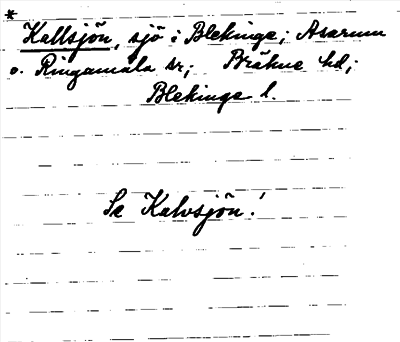 * Kallsjön, sjö i Blekinge; Asarum
o. Ringamåla sr; Bräkne hd;
Blekinge l.
Se Kalvsjön!